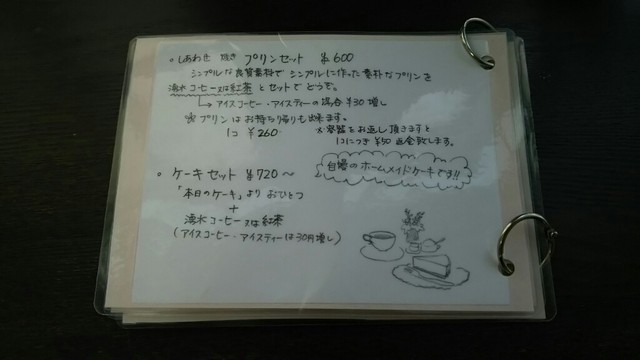 ○ しあわせ 焼き プリンセット ¥600
シンプルな良質素材で シンプルに作った素朴なプリンを
湧水コーヒー又は紅茶とセットでどうぞ。
↳アイスコーヒー・アイスティーの場合 ¥30 増し
プリンはお持ち帰りも出来ます。
1コ ¥260
※容器をお返し頂きますと
1コにつき ¥50 返金致します。
○ ケーキセット ¥720〜
自慢のホームメイドケーキです!!
「本日のケーキ」より おひとつ
+
湧水コーヒー又は紅茶
(アイスコーヒー・アイスティーは30円増し)